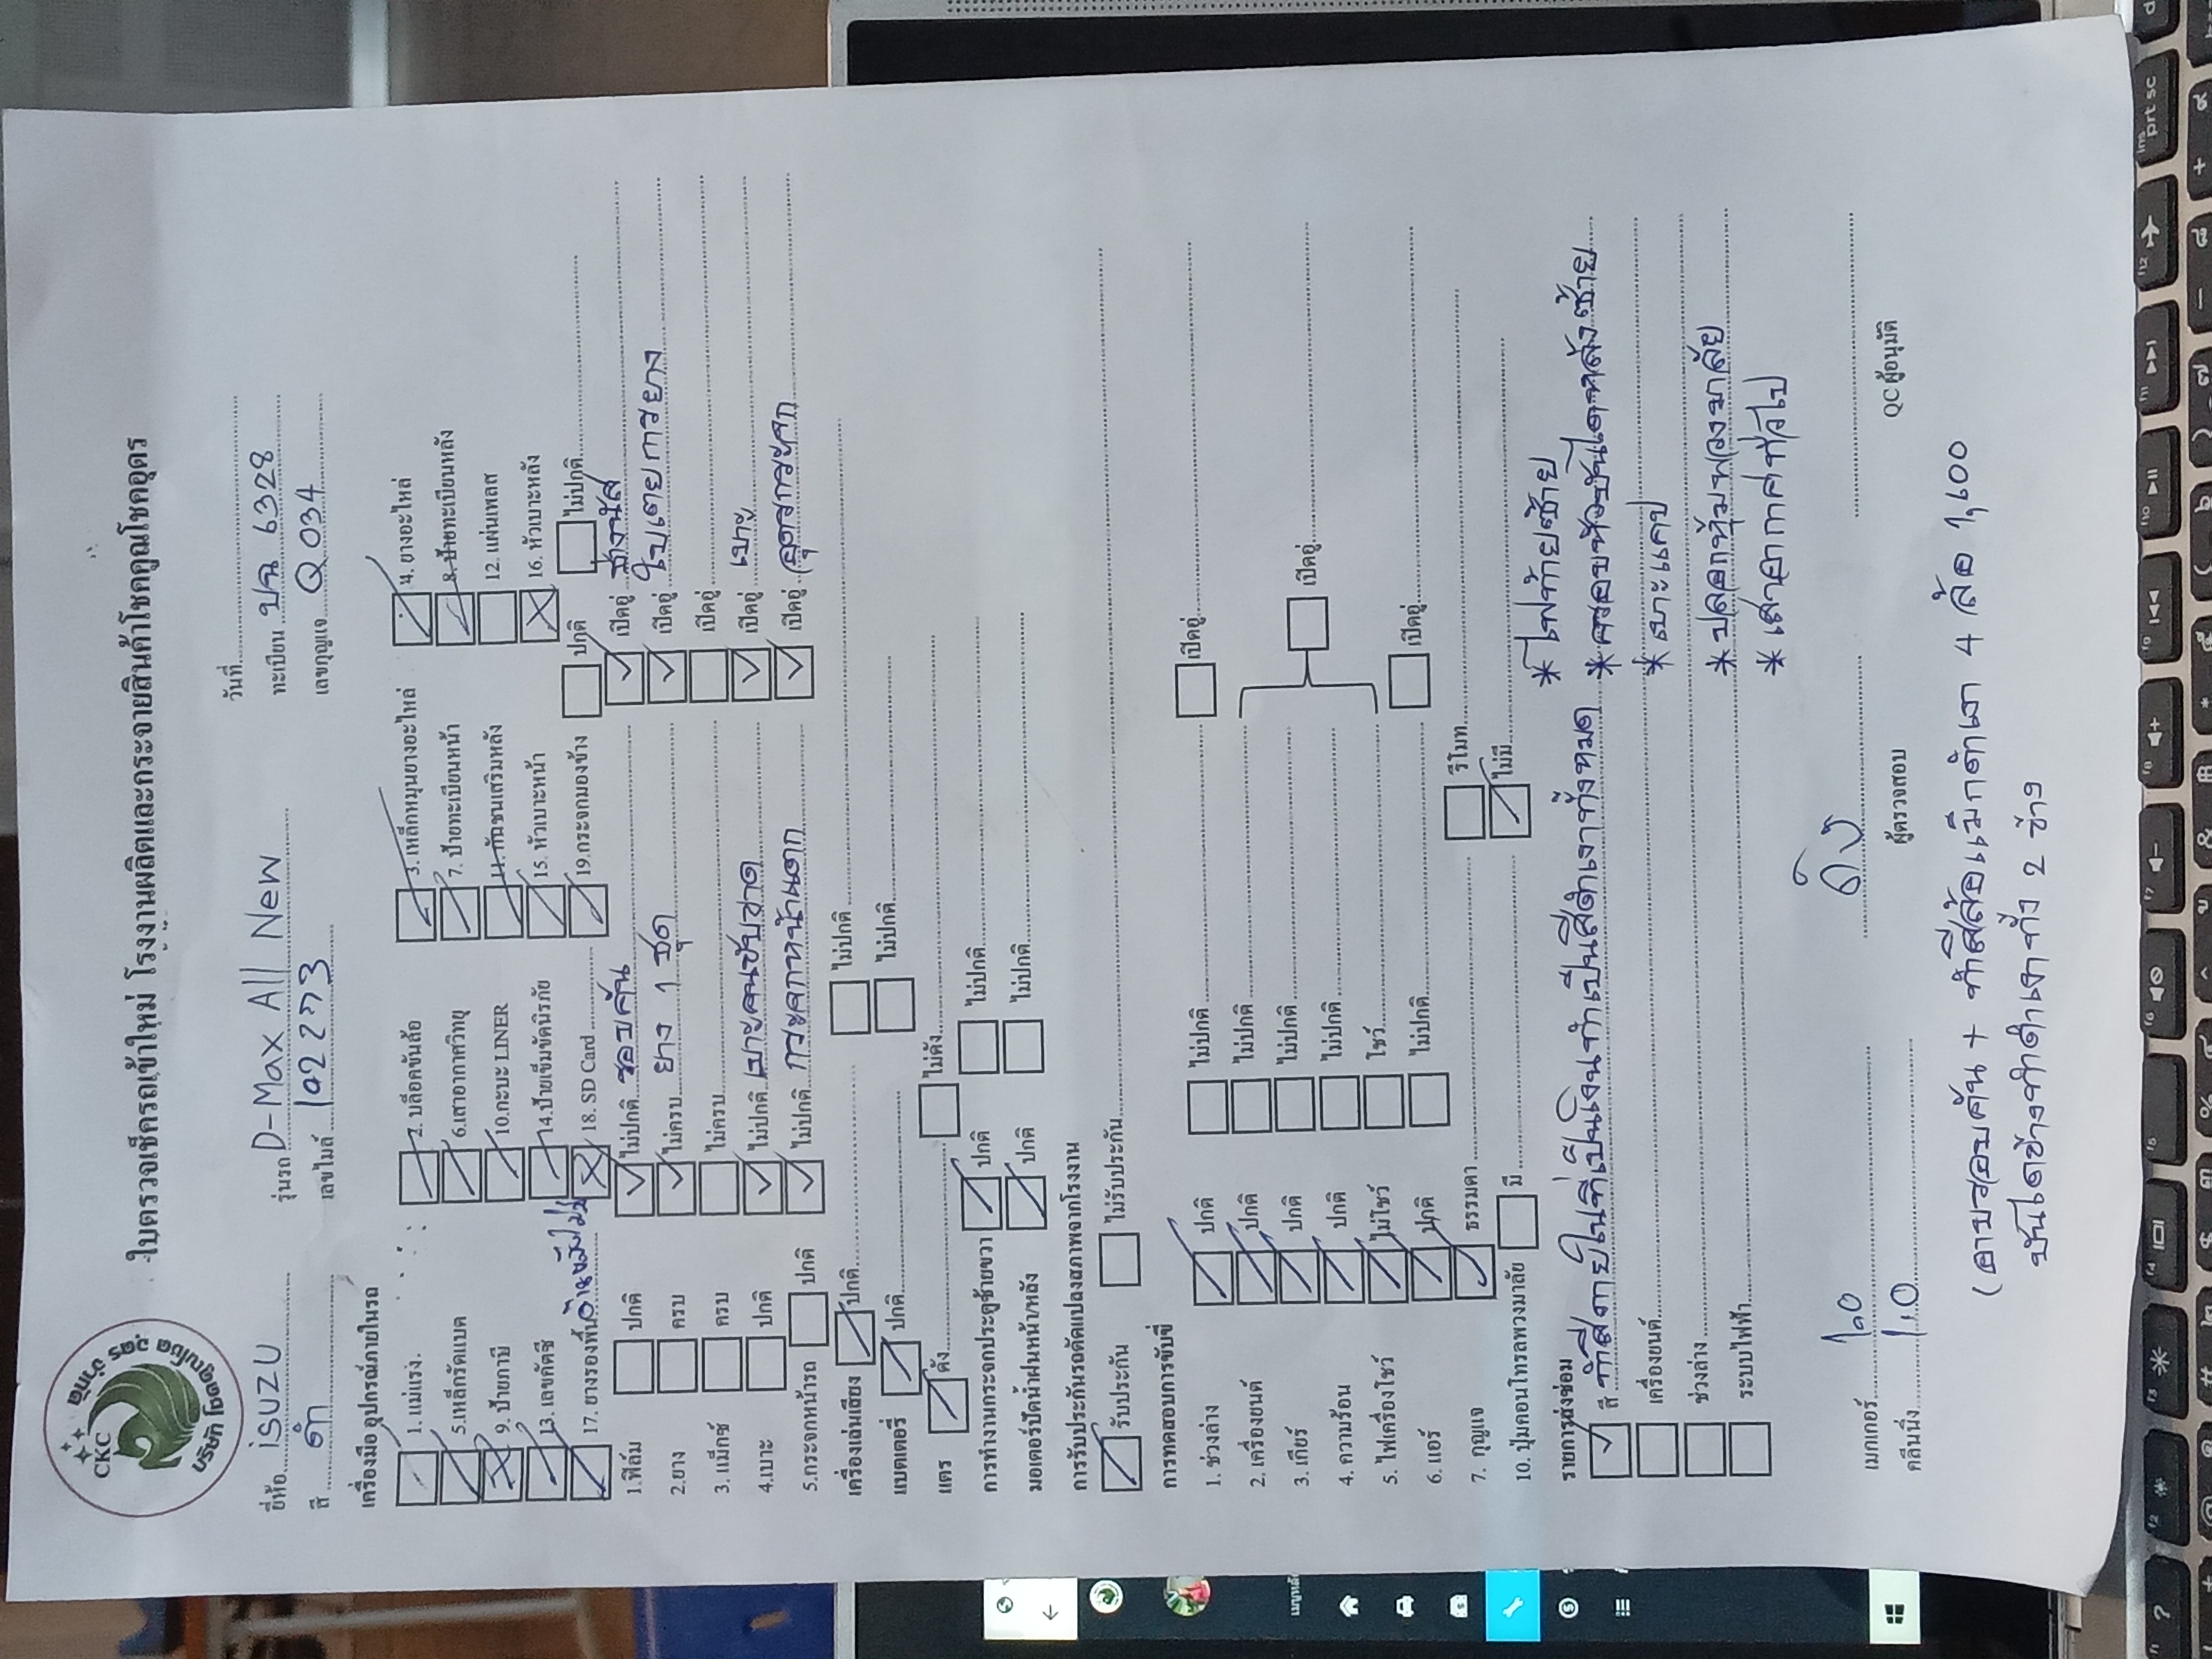 CKC
บริษัท โชคคูณโชค อุดร จำกัด
ใบตรวจเช็ครถเข้าใหม่ โรงงานผลิตและกระจายสินค้าโชคคูณโชคอุดร
วันที่
ยี่ห้อ ISUZU รุ่นรถ D-Max All New ทะเบียน 6328
สี ดำ เลขไมล์ เลขกุญแจ Q034
เครื่องมือ อุปกรณ์ภายในรถ
1. แม่แรง. 2. บล็อคขันล้อ 3. เหล็กหมุนยางอะไหล่ 4. ยางอะไหล่
5.เหล็กรัดแบต 6.เสาอากาศวิทยุ 7. ป้ายทะเบียนหน้า 8. ป้ายทะเบียนหลัง
9. ป้ายภาษี 10.กะบะ LINER 11. กันชนเสริมหลัง 12. แผ่นเพลส
13. เลขคัตซี 14.ป้ายเข็มขัดนิรภัย 15. หัวเบาะหน้า 16. หัวเบาะหลัง
17. ยางรองพื้น 18. SD Card 19.กระจกมองข้าง ปกติ ไม่ปกติ
1.ฟิล์ม ปกติ ไม่ปกติ รอบคัน เปิดอู่ ช่างนัส
2.ยาง ครบ ไม่ครบ ยาง 1 ชุด เปิดอู่ ใบเตยการยาง
3. แม็กซ์ ครบ ไม่ครบ เปิดอู่
4.เบาะ ปกติ ไม่ปกติ เบาะคนขับขาด เปิดอู่ เบาะ
5.กระจกหน้ารถ ปกติ ไม่ปกติ กระจกหน้าแตก เปิดอู่ อุดรกระจก
เครื่องเล่นเสียง ปกติ ไม่ปกติ
แบตเตอรี่ ปกติ ไม่ปกติ
แตร ดัง ไม่ดัง
การทำงานกระจกประตูซ้ายขวา ปกติ ไม่ปกติ
มอเตอร์ปัดน้ำฝนหน้า/หลัง ปกติ ไม่ปกติ
การรับประกันรถดัดแปลงสภาพจากโรงงาน
รับประกัน ไม่รับประกัน
การทดสอบการขับขี่
1. ช่วงล่าง ปกติ ไม่ปกติ เปิดอู่
2. เครื่องยนต์ ปกติ ไม่ปกติ
3. เกียร์ ปกติ ไม่ปกติ เปิดอู่
4. ความร้อน ปกติ ไม่ปกติ
5. ไฟเครื่องโชว์ ไม่โชว์ โชว์
6. แอร์ ปกติ ไม่ปกติ เปิดอู่
7. กุญแจ ธรรมดา รีโมท
10. ปุ่มคอนโทรลพวงมาลัย มี ไม่มี
รายการส่งซ่อม * ไฟท้ายซ้าย
สี ทำสีภายในที่เป็นเงินทำเป็นสีดำเงาทั้งหมด * ครอบหัวบันไดหลังซ้าย
เครื่องยนต์ * เบาะแคป
ช่วงล่าง * ปลอกหุ้มพวงมาลัย
ระบบไฟฟ้า * เสาอากาศทั่วไป
เมกเกอร์ ผู้ตรวจสอบ QC ผู้อนุมัติ
คลีนนิ่ง
(อาบรอบคัน + ทำสีล้อแม็กดำเงา 4 ล้อ 1,600
บันไดข้างทำดำเงาทั้ง 2 ข้าง
prt sc